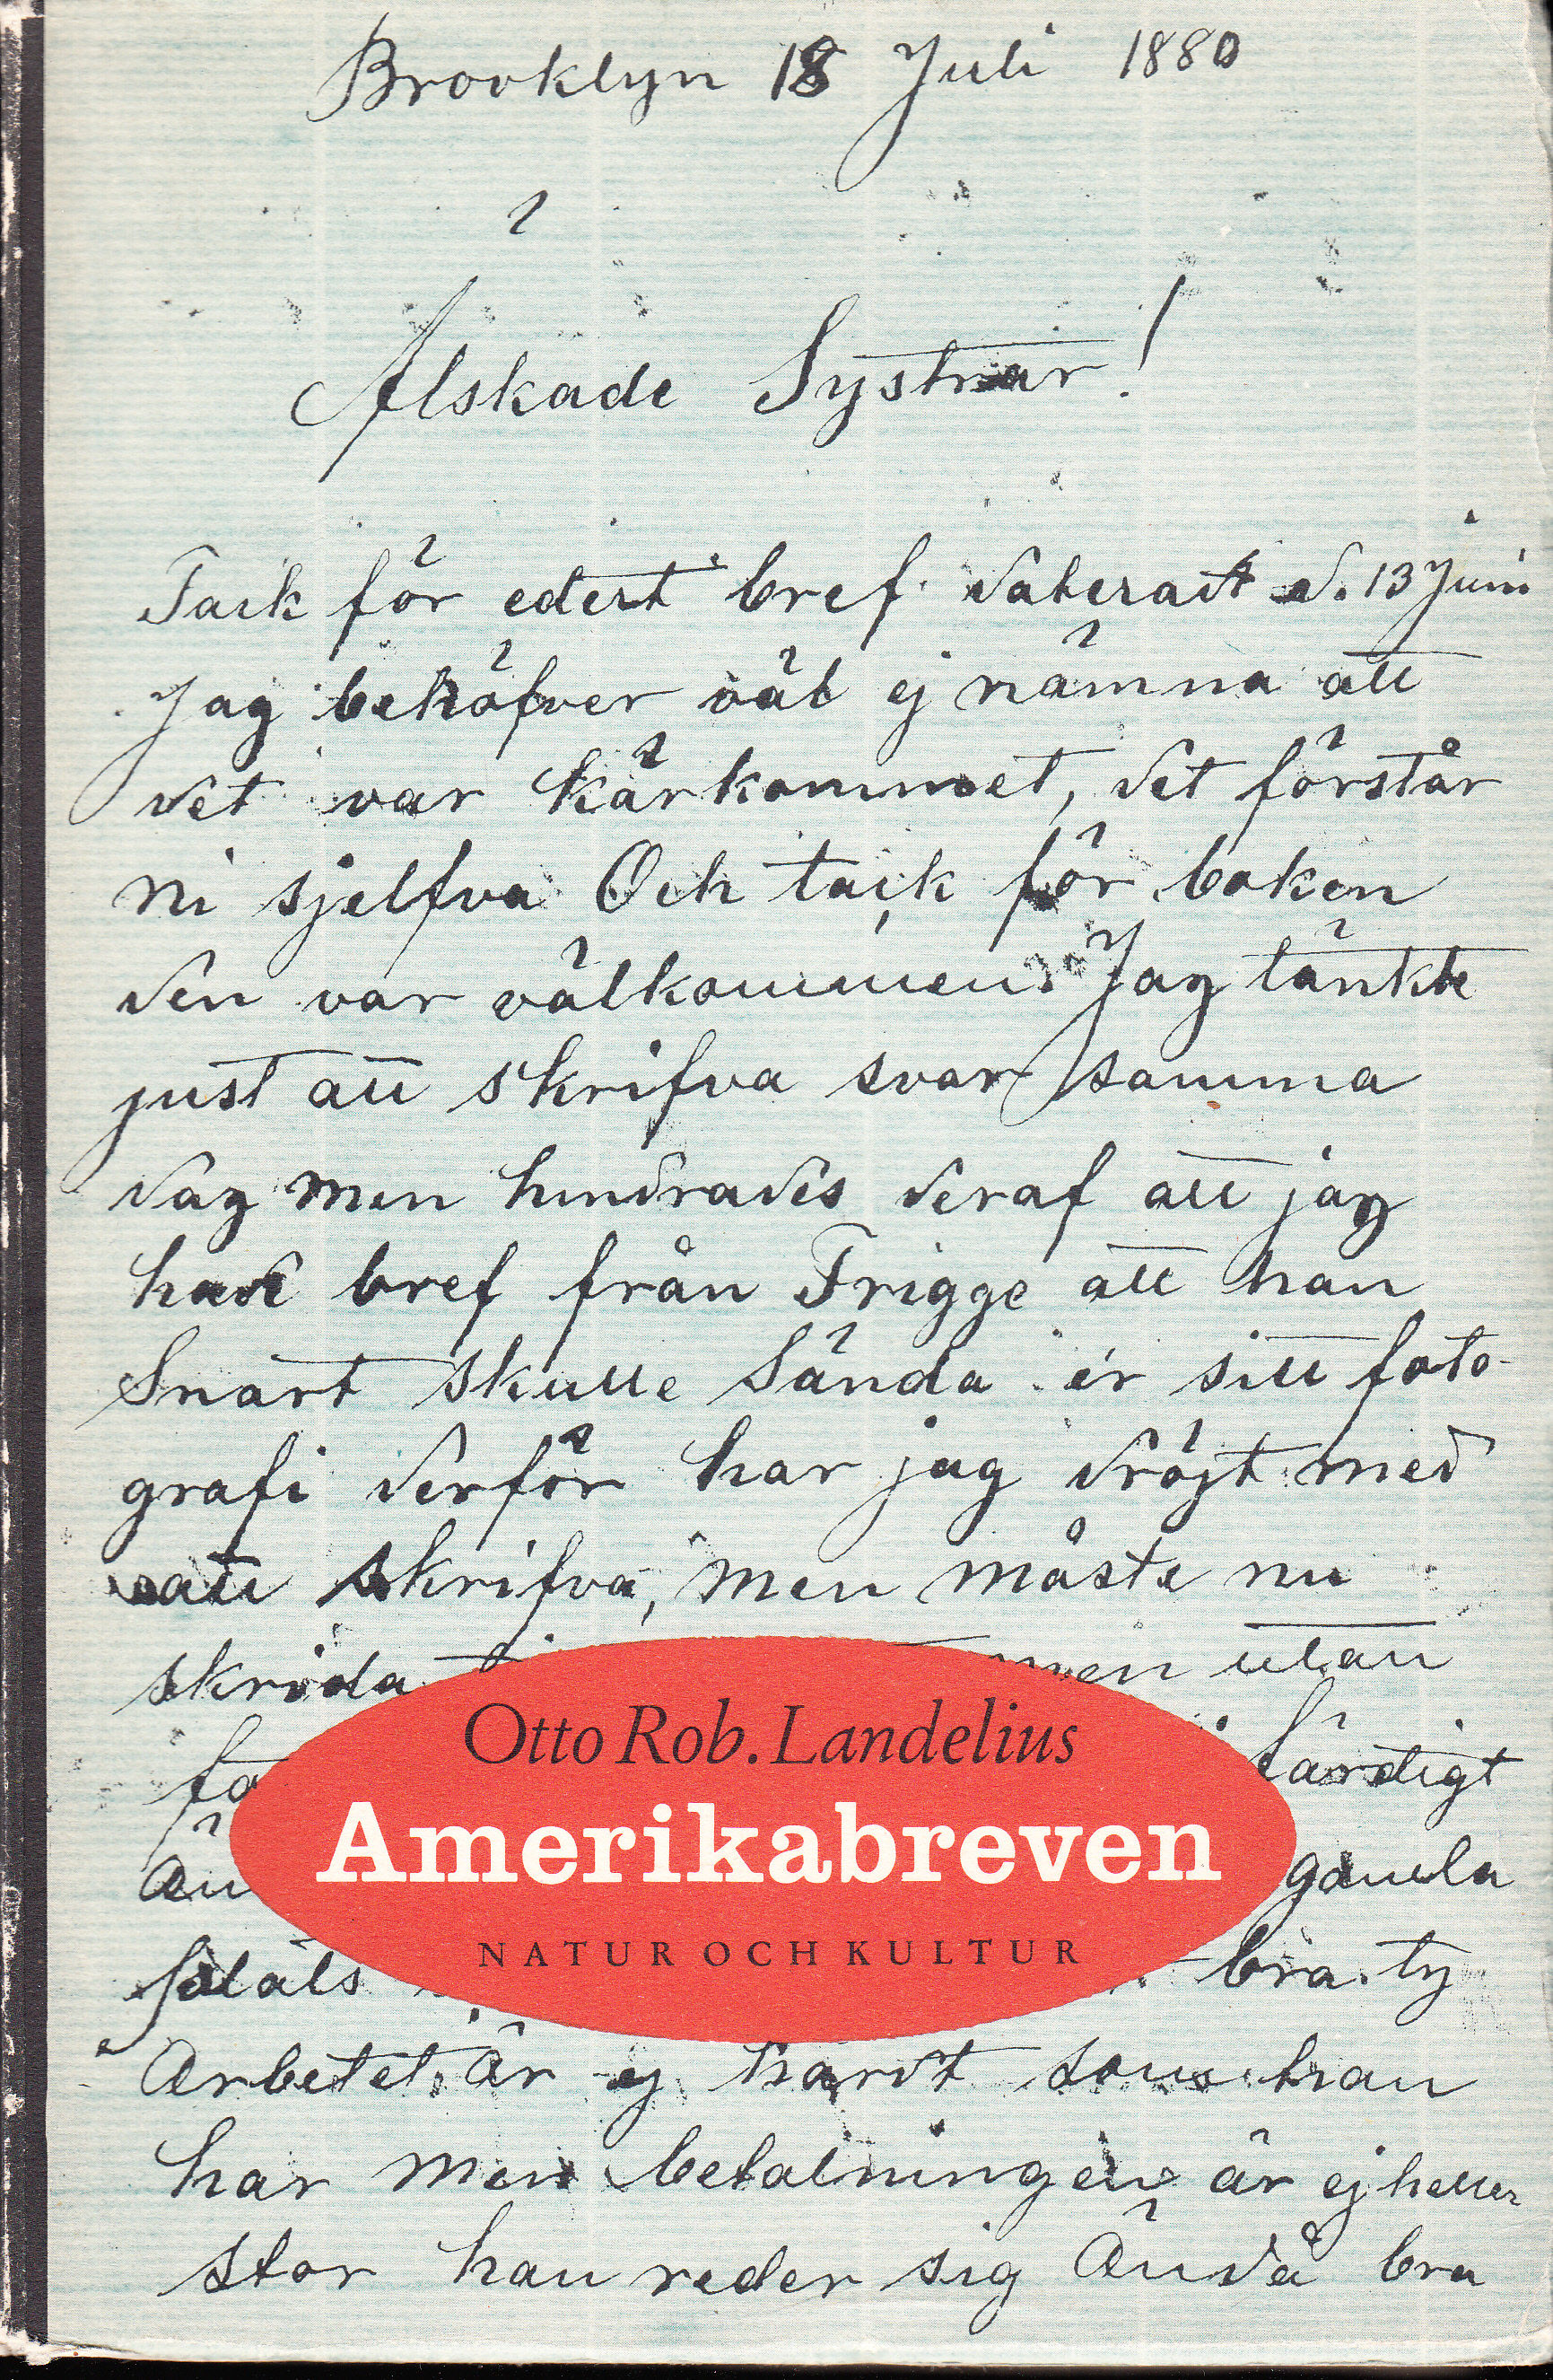 Brooklyn 18 Juli 1880
Älskade Systrar!
Tack för edert bref daterat d. 13 Juni
Jag behöfver väl ej nämna att
det var kärkommet, det förstår
ni sjelfva Och tack för boken
den var välkommen. Jag tänkte
just att skrifva svar samma
dag men hindrades deraf att jag
hade bref från Frigge att han
Snart skulle Sända er sitt foto-
grafi derför har jag dröjt med
att skrifva, men måste nu
skrida men utan
färdigt
gamla
bra. ty
Otto Rob. Landelius
Amerikabreven
NATUR OCH KULTUR
Arbetet är ej hardt som han
har men betalningen är ej heller
stor han reder sig Ändå bra